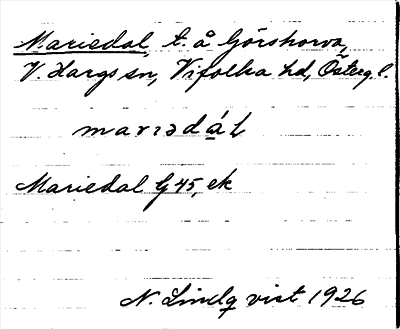 Mariedal, t. å Görshorva,
V. Hargs sn, Vifolka hd, Österg. l.
marıədál
Mariedal G 45, ek
N. Lindqvist 1926